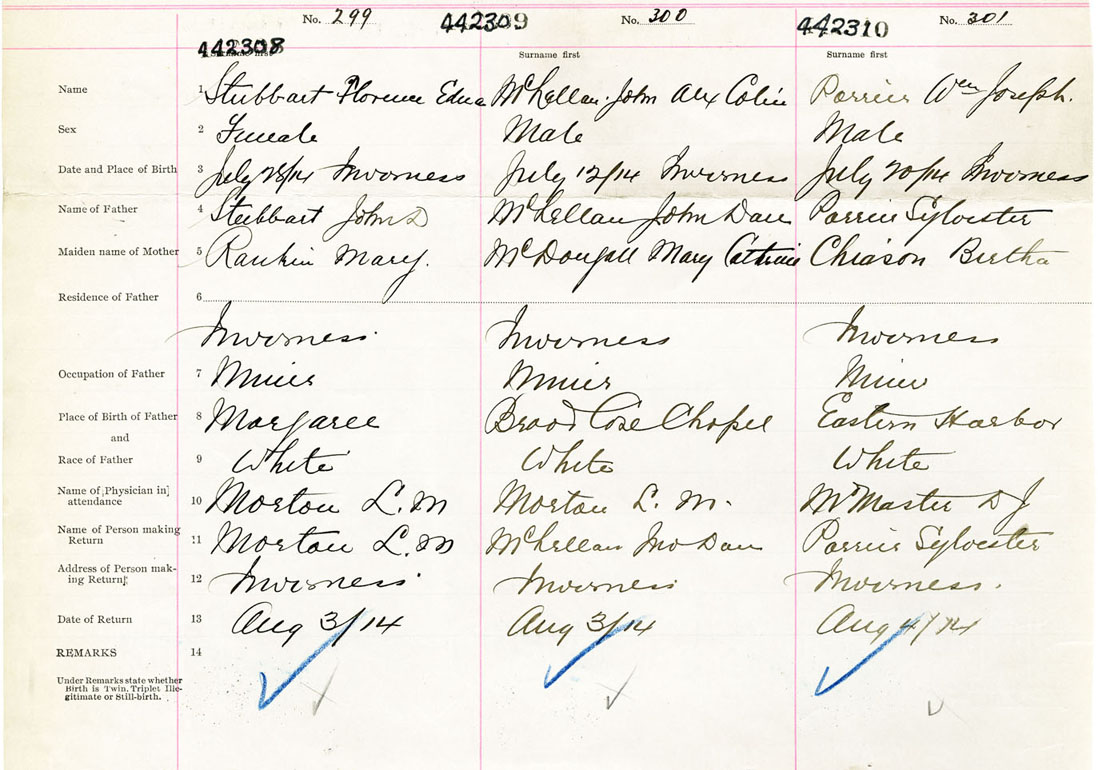 No. 299 442309 No. 300 442310 No. 301
442308
Surname first Surname first Surname first
Name 1 Stubbart Florence Edna McLellan John Alex Colin Perrier Wm Joseph.
Sex 2 Female Male Male
Date and Place of Birth 3 July 28/14 Inverness July 12/14 Inverness July 20/14 Inverness
Name of Father 4 Stubbart John D McLellan John Dan Perrier Sylvester
Maiden name of Mother 5 Rankin Mary. McDougall Mary Cathrine Chiason Bertha
Residence of Father 6
Inverness Inverness Inverness
Occupation of Father 7 Miner Miner Miner
Place of Birth of Father 8 Margaree Broad Cove Chapel Eastern Harbor
and
Race of Father 9 White White White
Name of Physician in
attendance 10 Morton L. M Morton L. M. McMaster D J
Name of Person making
Return 11 Morton L. M McLellan Jno Dan Perrier Sylvester
Address of Person mak-
ing Return 12 Inverness Inverness Inverness.
Date of Return 13 Aug 3/14 Aug 3/14 Aug 4/14
REMARKS 14
Under Remarks state whether
Birth is Twin, Triplet Ille-
gitimate or Still-birth.